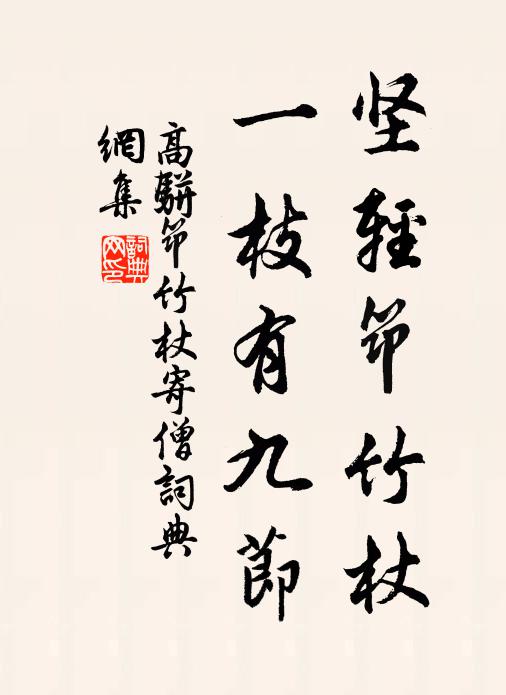 坚輕筇竹杖
一枝有九節
高駢筇竹杖寄僧詞典
網集
詞典网印